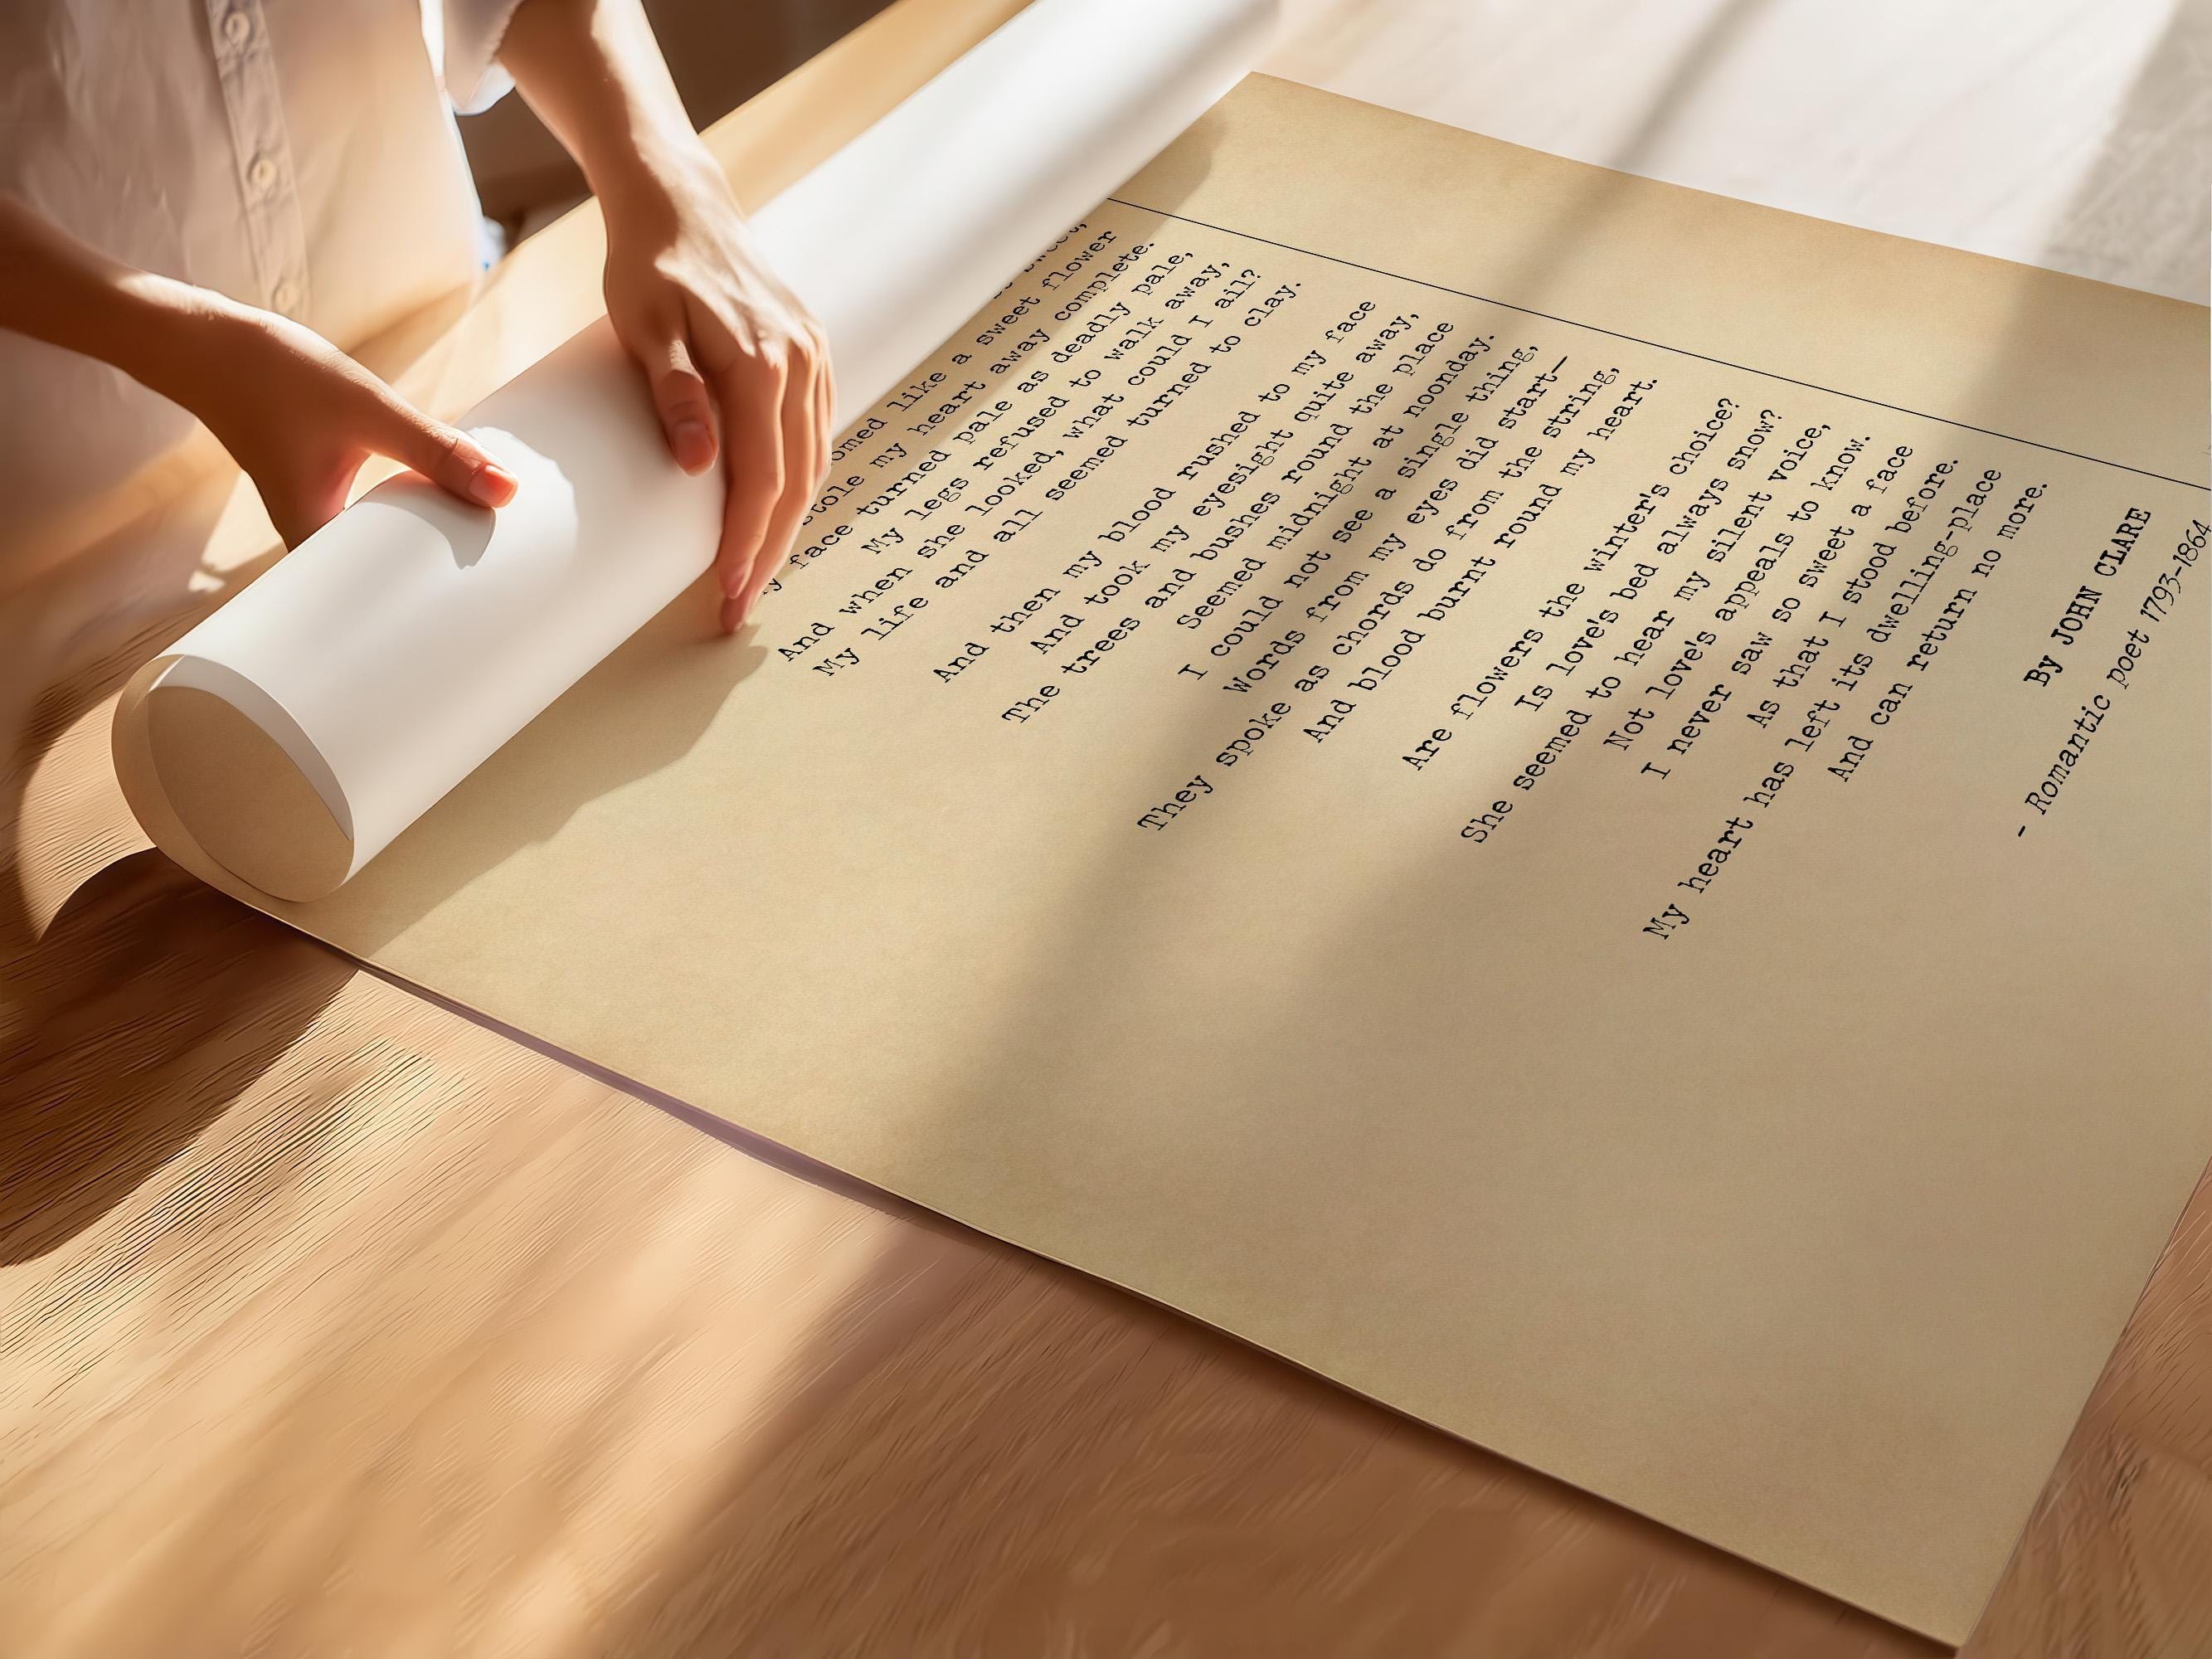 sweet,
like a sweet flower
stole my heart away complete.
face turned pale as deadly pale,
My legs refused to walk away,
And when she looked, what could I ail?
My life and all seemed turned to clay.
And then my blood rushed to my face
And took my eyesight quite away,
The trees and bushes round the place
Seemed midnight at noonday.
I could not see a single thing,
Words from my eyes did start—
They spoke as chords do from the string,
And blood burnt round my heart.
Are flowers the winter's choice?
Is love's bed always snow?
She seemed to hear my silent voice,
Not love's appeals to know.
I never saw so sweet a face
As that I stood before.
My heart has left its dwelling-place
And can return no more.
By JOHN CLARE
- Romantic poet 1793-1864